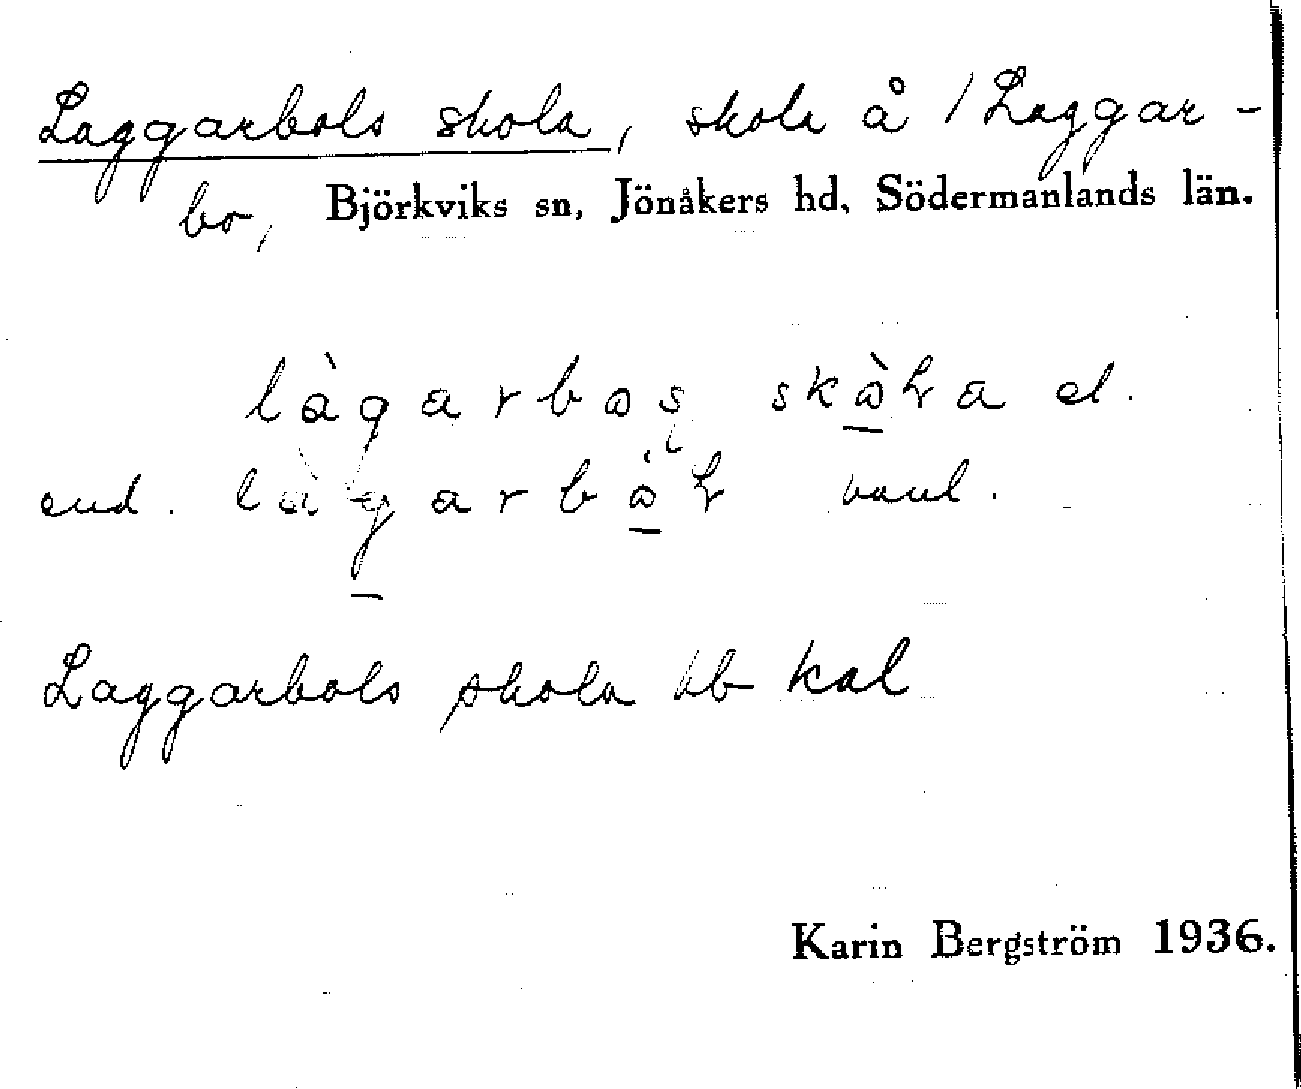 Laggarbols skola, skola å / Laggar-
bo, Björkviks sn, Jönåkers hd, Södermanlands län.
làgarbos skòla el.
end. làgarbòl vanl.
Laggarbols skola hb kal
Karin Bergström 1936.